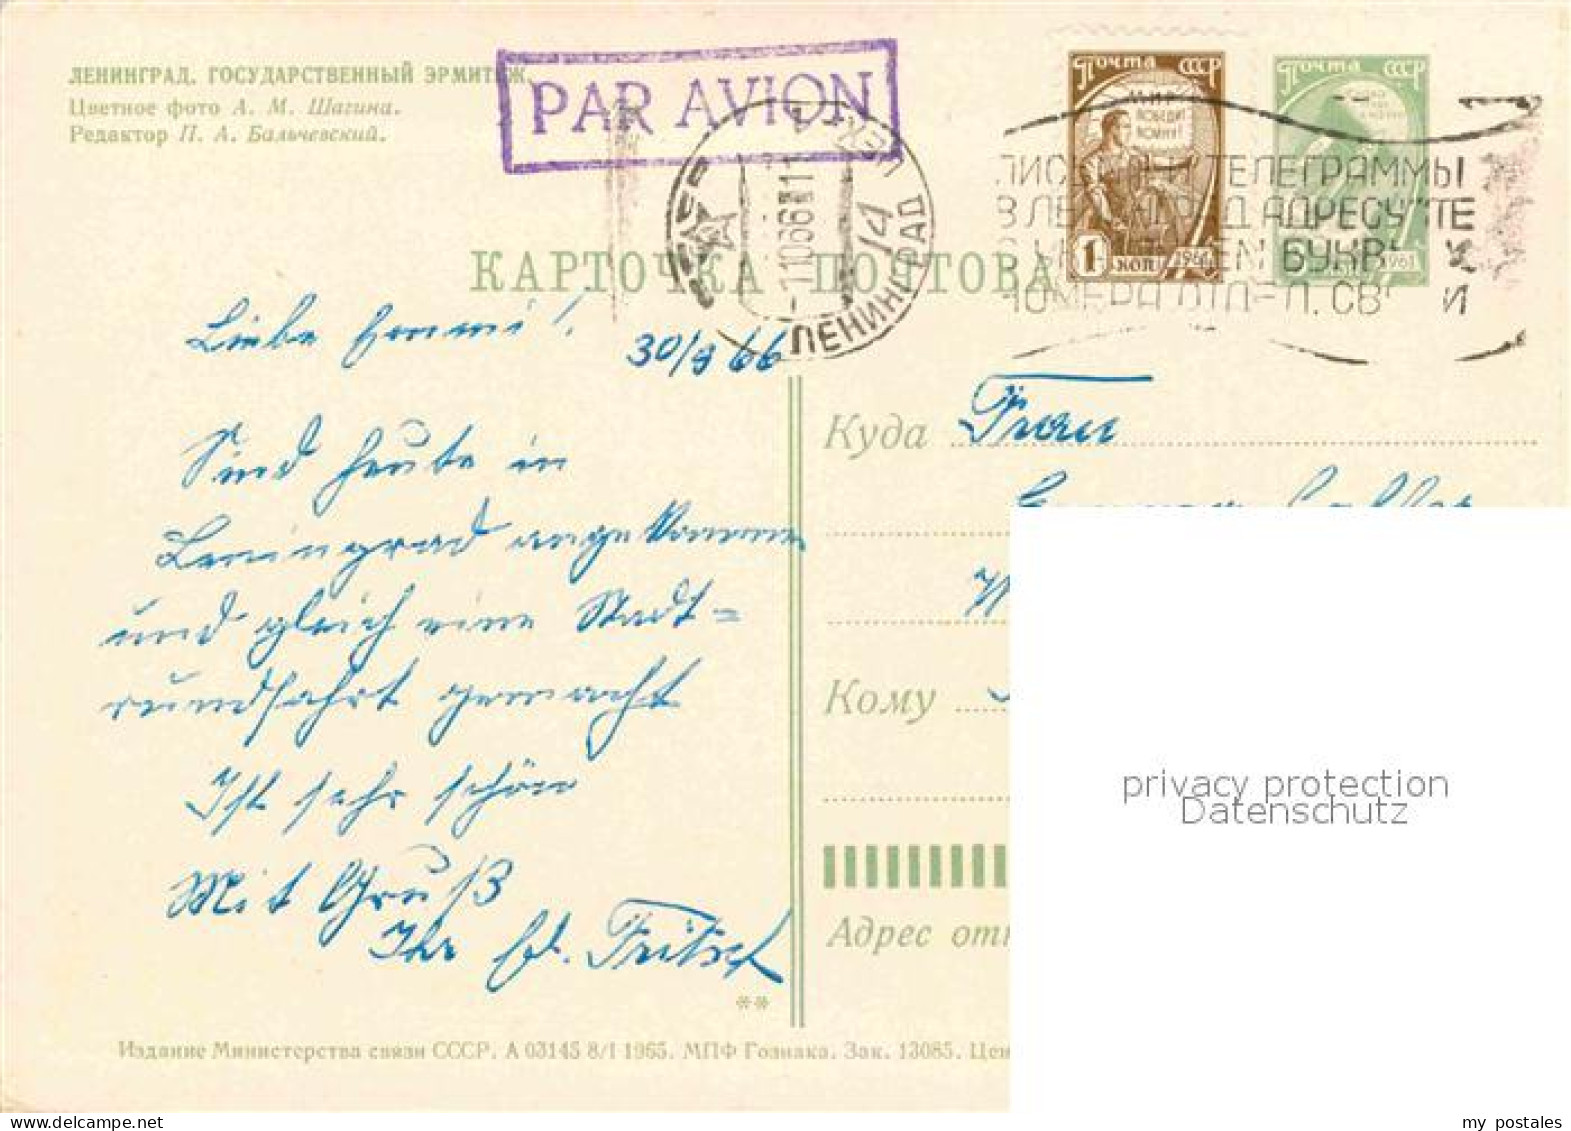 ЛЕНИНГРАД. ГОСУДАРСТВЕННЫЙ ЭРМИТАЖ.
Цветное фото А. М. Шагина.
Редактор П. А. Бальчевский.
PAR AVION
ПОЧТА СССР
МИР ПОБЕДИТ ВОЙНУ!
1 КОП 1961
ПОЧТА СССР
1961
ЛЕНИНГРАД
ТЕЛЕГРАММЫ
АДРЕСУЙТЕ
БУКВЫ И
КАРТОЧКА ПОЧТОВАЯ
Liebe Emmi!
30/9 66
Sind heute in
Leningrad angekommen
und gleich eine Stadt=
rundfahrt gemacht
Ist sehr schön
Mit Gruß
Ihr Fritsch
**
Куда Frau
Кому
Адрес отп
Издание Министерства связи СССР. А 03145 8/I 1965. МПФ Гознака. Зак. 13085. Цен
privacy protection
Datenschutz
my postales